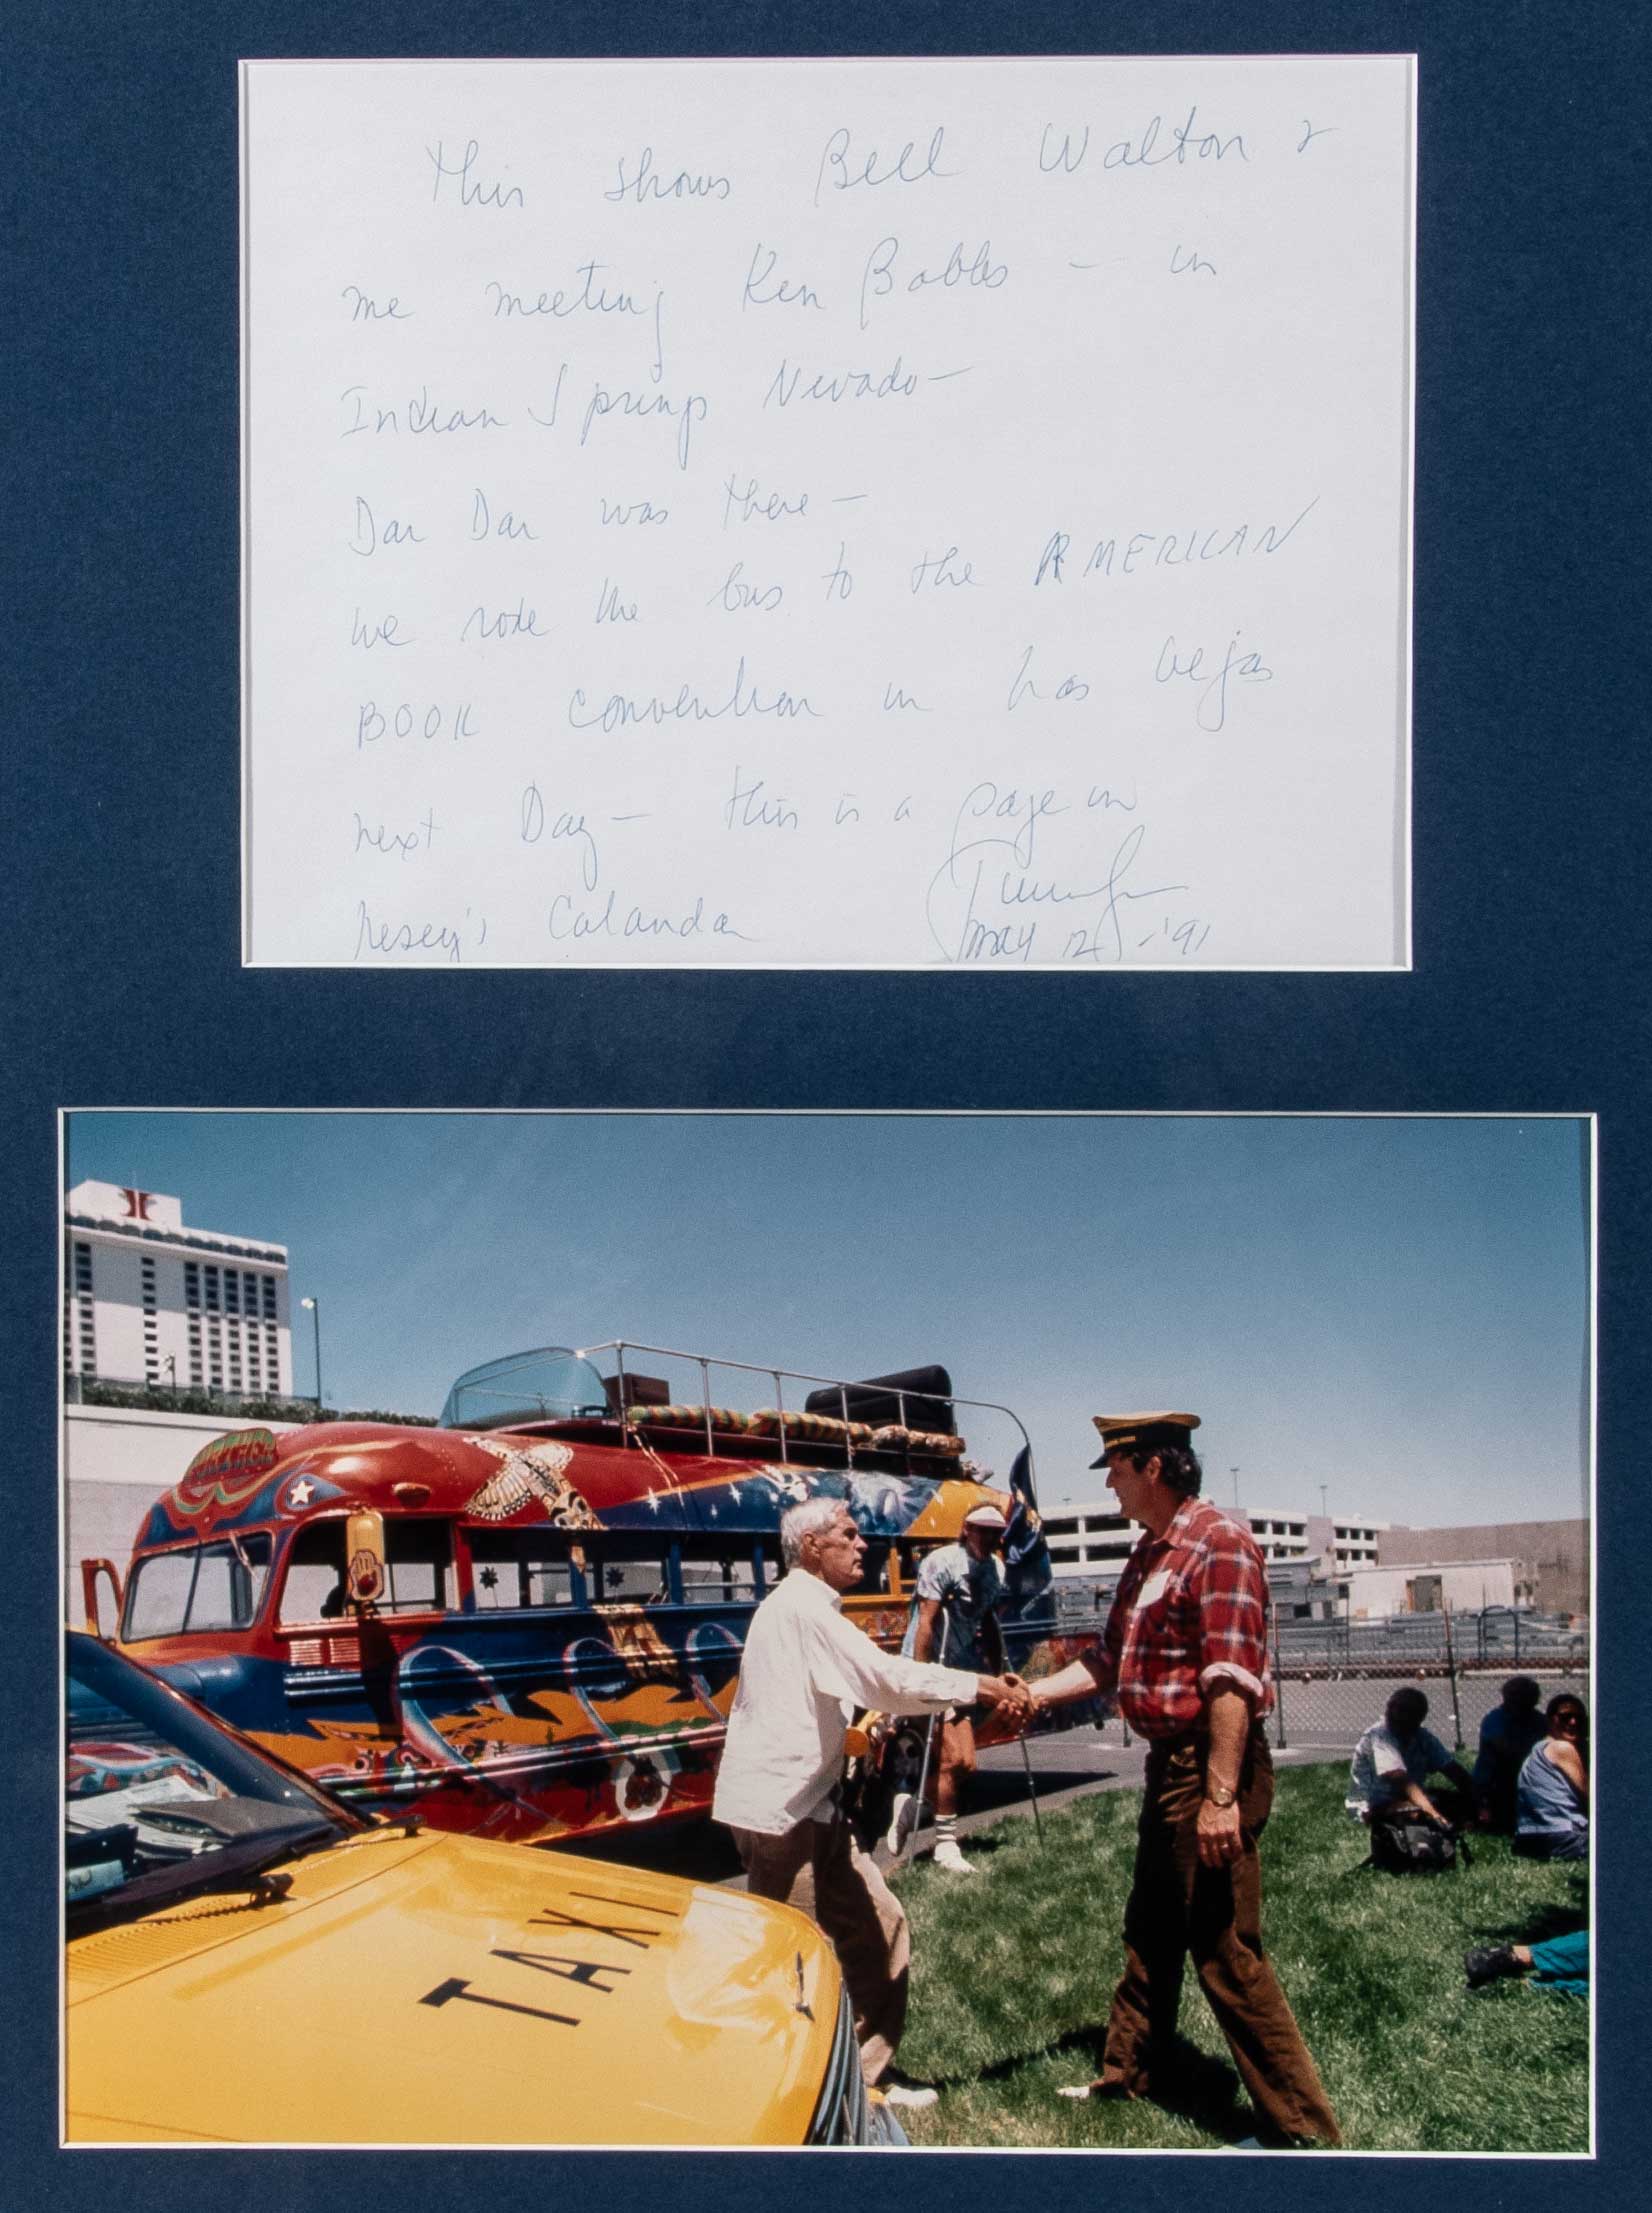 This shows Bill Walton &
me meeting Ken Babbs — in
Indian Springs Nevada —
Dar Dar was there —
we rode the bus to the AMERICAN
BOOK convention in Las Vegas
next Day — this is a page in
Kesey's Calanda
MAY 12 - '91
FURTHER
TAXI